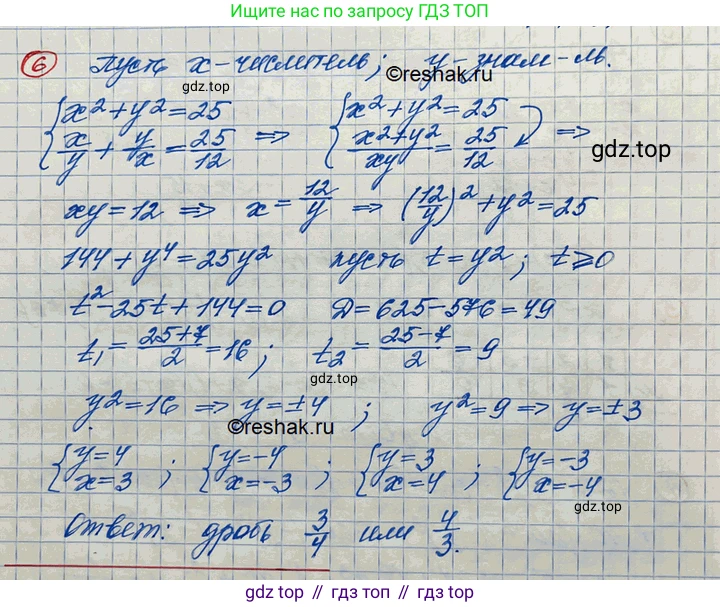 Ищите нас по запросу ГДЗ ТОП
6 Пусть x-числитель; y-знам-ль.
©reshak.ru
gdz.top
{x²+y²=25 {x²+y²=25
x/y + y/x = 25/12 => (x²+y²)/xy = 25/12 =>
gdz.top
xy=12 => x=12/y => (12/y)²+y²=25
144+y⁴=25y² пусть t=y²; t⩾0
t²-25t+144=0 D=625-576=49
t₁=(25+7)/2=16; t₂=(25-7)/2=9
gdz.top
y²=16 => y=±4; y²=9 => y=±3
©reshak.ru
{y=4 ; {y=-4 ; {y=3 ; {y=-3
x=3 x=-3 x=4 x=-4
gdz.top
Ответ: дробь 3/4 или 4/3.
gdz.top // гдз.топ // gdz.top // гдз.топ